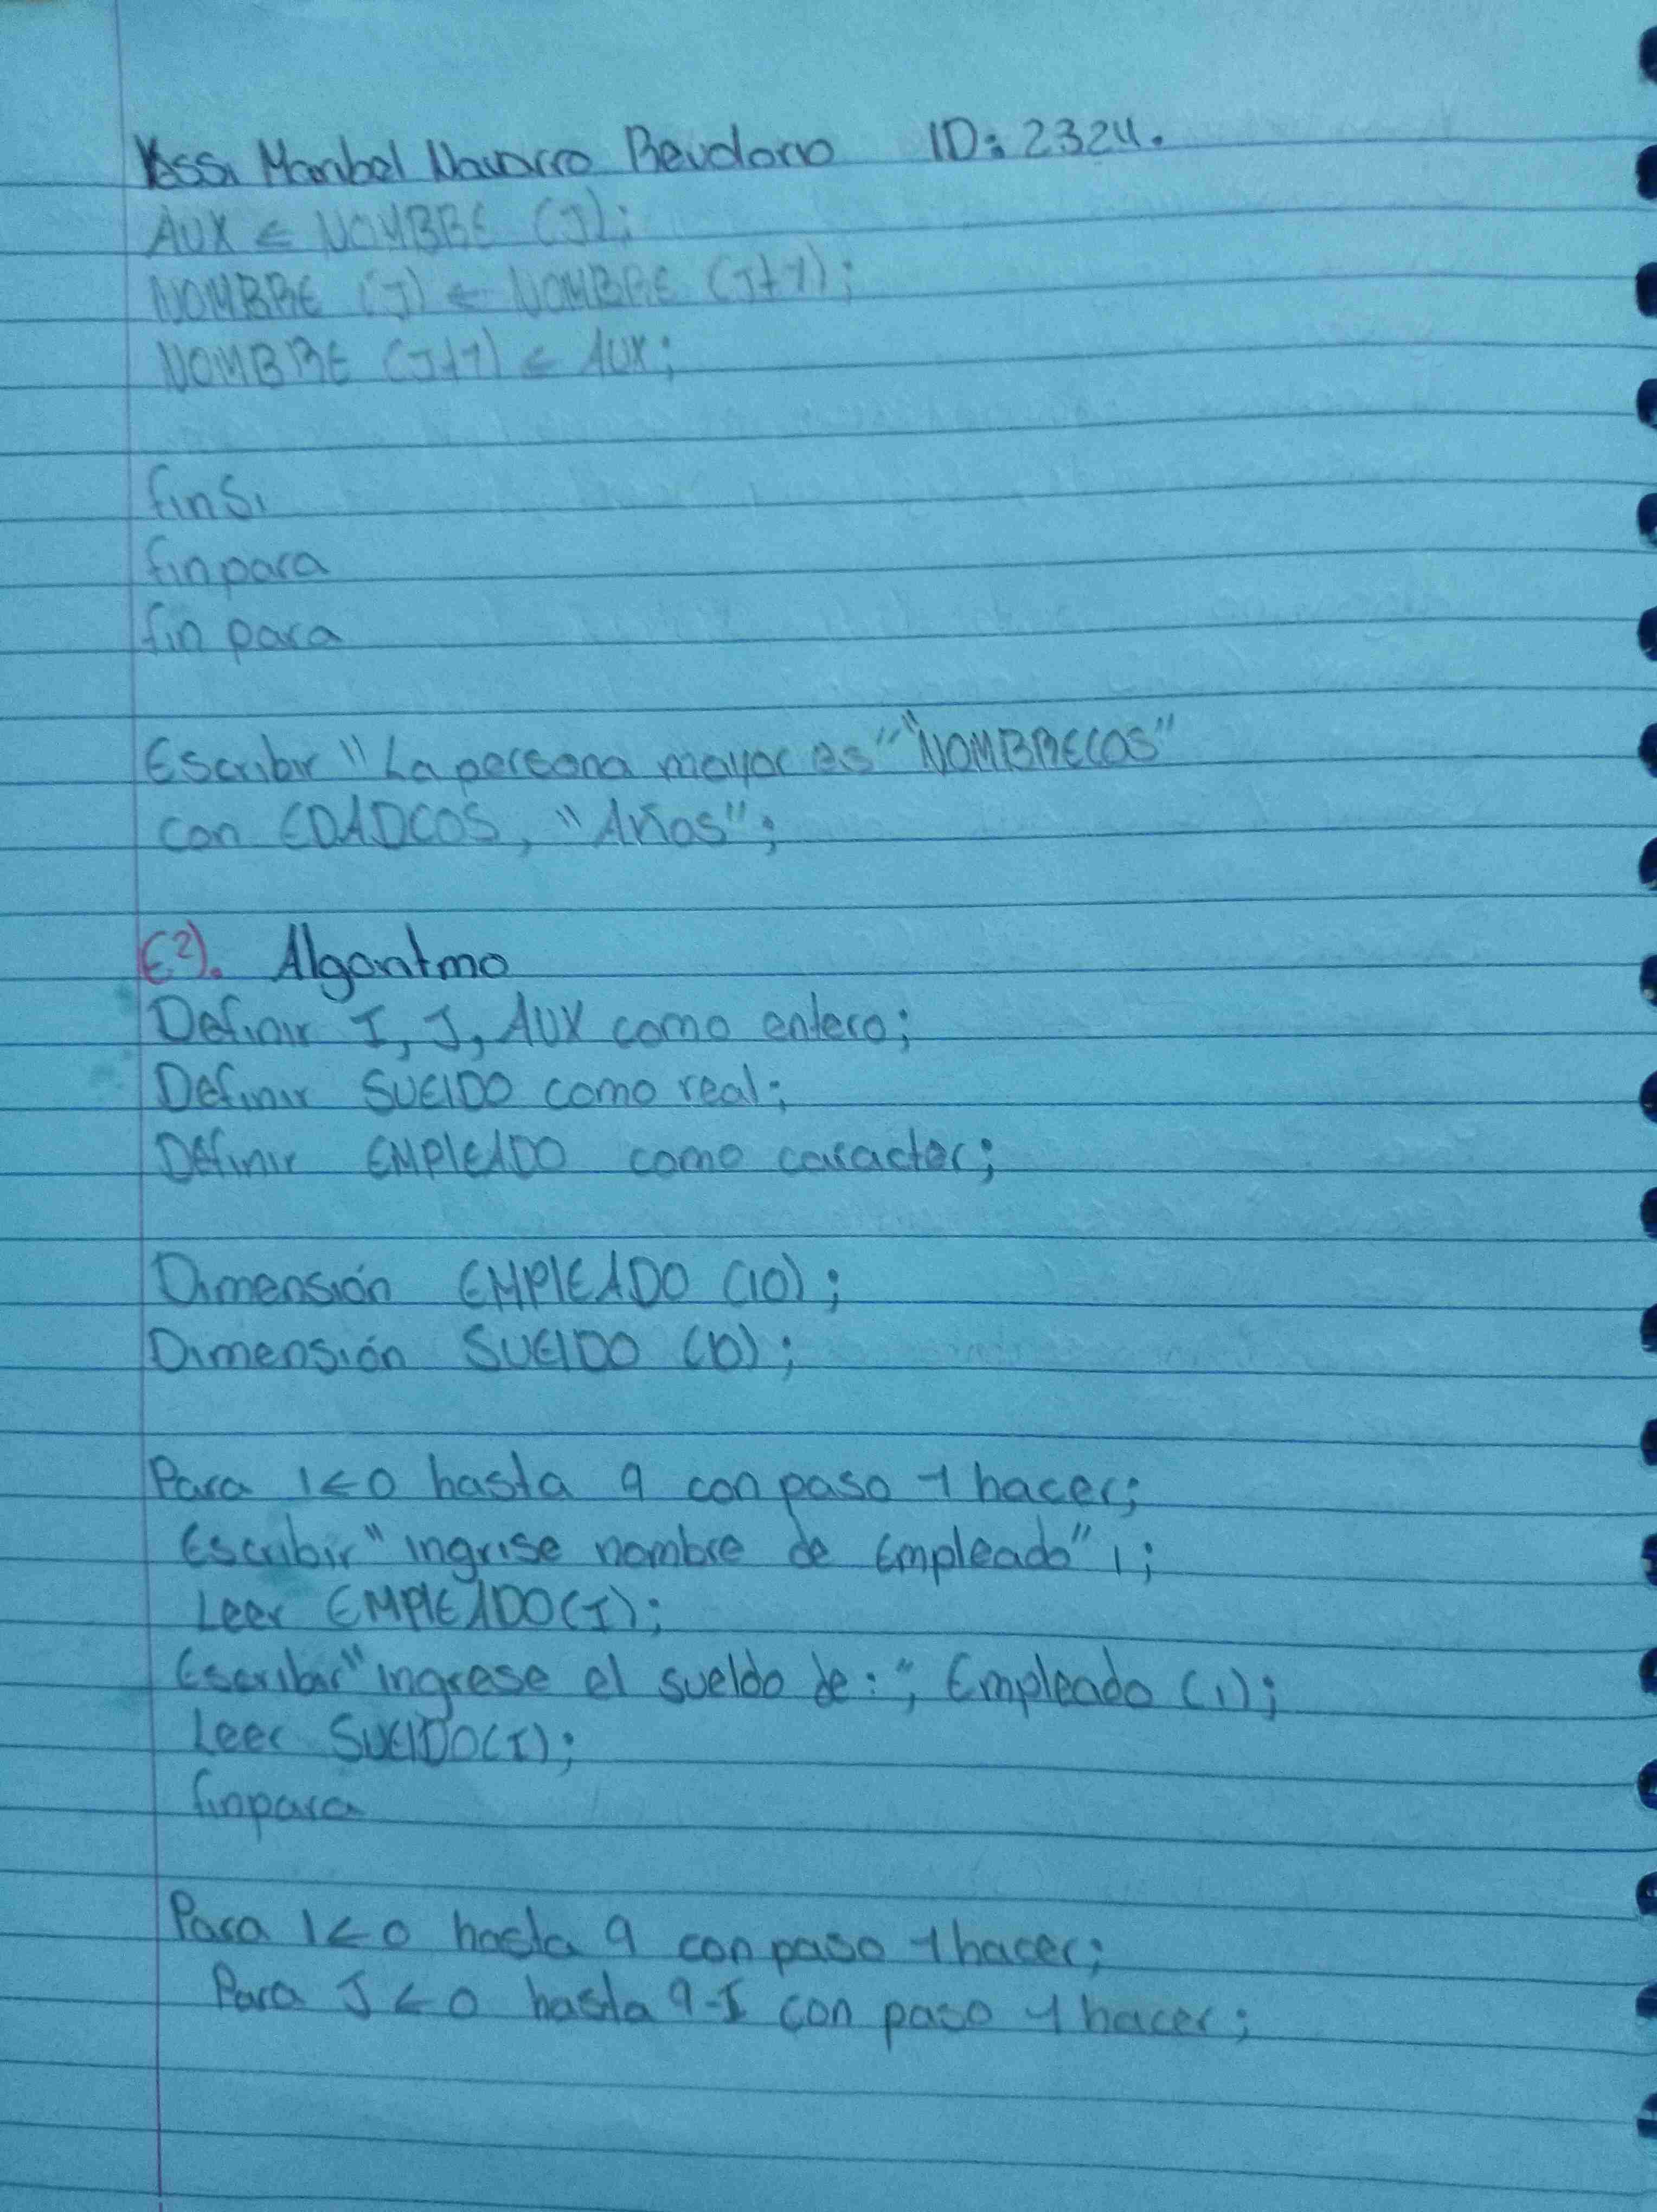 Yessi Maribel Navarro Beudono ID: 2324.
AUX ← NOMBRE (J);
NOMBRE (J) ← NOMBRE (J+1);
NOMBRE (J+1) ← AUX;
finSi
finpara
fin para
Escribir "La persona mayor es" "NOMBRECOS"
con EDADCOS, "Años";
E2). Algoritmo
Definir I, J, AUX como entero;
Definir SUELDO como real;
Definir EMPLEADO como caracter;
Dimensión EMPLEADO (10);
Dimensión SUELDO (10);
Para I←0 hasta 9 con paso 1 hacer;
Escribir "ingrise nombre de Empleado" I;
Leer EMPLEADO(I);
Escribir "ingrese el sueldo de:", Empleado (I);
Leer SUELDO(I);
finpara
Para I←0 hasta 9 con paso 1 hacer;
Para J←0 hasta 9-I con paso 1 hacer;